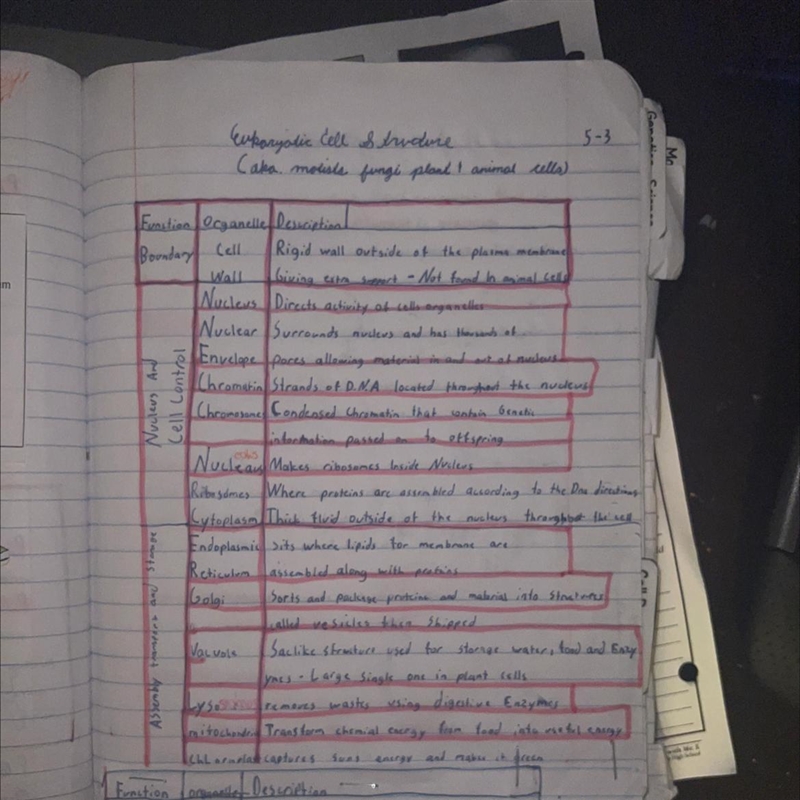 Eukaryotic Cell Structure 5-3
(aka. motists fungi plant & animal cells)
Function Organelle Description
Boundary Cell Rigid wall outside of the plasma membrane
Wall Giving extra support - Not found In animal cells
Nucleus And Cell Control
Nucleus Directs activity of cells organelles
Nuclear Surrounds nucleus and has thousands of
Envelope pores allowing material in and out of nucleus
Chromatin Strands of D.N.A located throughout the nucleus
Chromosome Condensed Chromatin that contain Genetic
information passed on to offspring
Nucleolus Makes ribosomes Inside Nucleus
Ribosomes Where proteins are assembled according to the Dna directions
Cytoplasm Thick fluid outside of the nucleus throughout the cell
Assembly transport and Storage
Endoplasmic Sits where lipids for membrane are
Reticulum assembled along with proteins
Golgi Sorts and package proteins and material into Structures
called vesicles then Shipped
Vacuole Saclike structure used for storage water, food and Enzy
ymes - Large Single one in plant cells
Lyso removes wastes using digestive Enzymes
mitochondria Transform chemial energy from food into useful energy
Chloroplast captures Suns energy and makes it green
Function organelle Description
Genetics Science